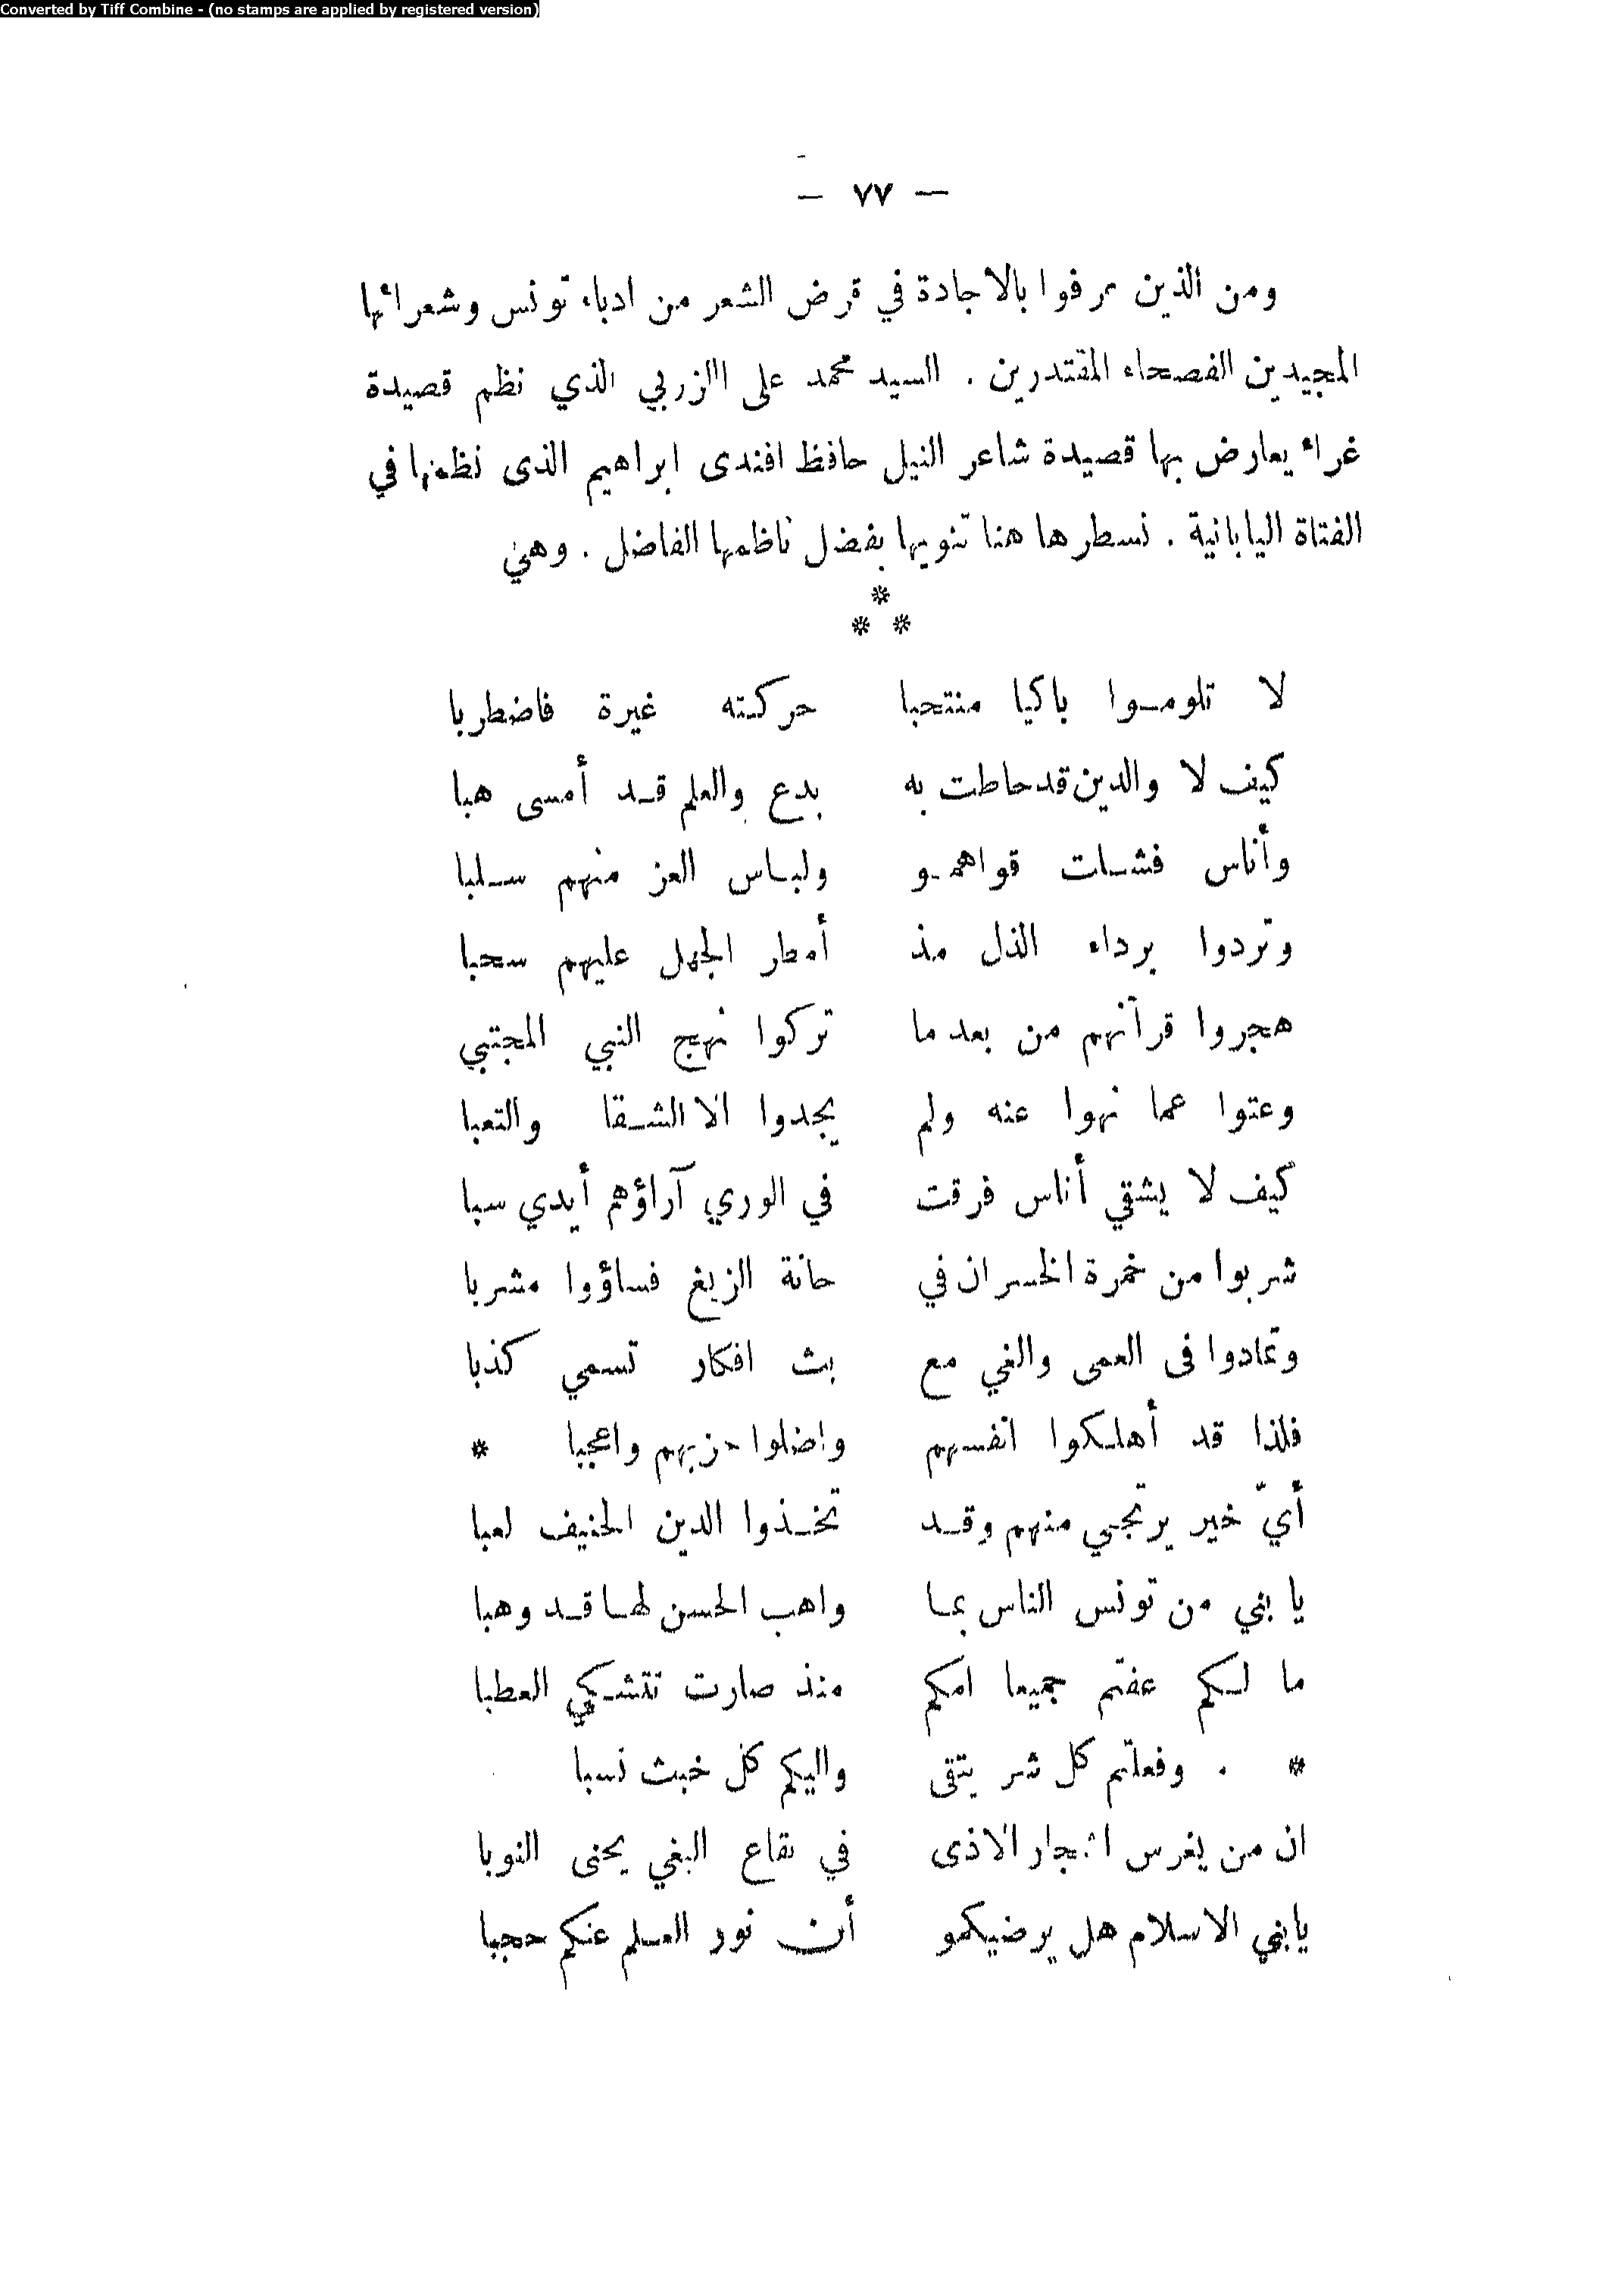 Converted by Tiff Combine - (no stamps are applied by registered version)
— ٧٧ —
ومن الذين عرفوا بالاجادة في قرض الشعر من ادباء تونس وشعرائها
المجيدين الفصحاء المقتدرين . السيد محمد على االزربي الذي نظم قصيدة
غراء يعارض بها قصيدة شاعر النيل حافظ افندى ابراهيم الذى نظمها في
الفتاة اليابانية . نسطرها هنا تنويها بفضل ناظمها الفاضل . وهي
*
* *
لا تلومـوا باكيا منتحبا حركـته غيرة فاضطربا
كيف لا والدين قد حاطت به بدع والعلم قـد أمسى هبا
وأناس فشـلت قواهمـو ولبـاس العز منهم سـلبا
وتردوا برداء الذل مذ أمطر الجهل عليهم سحبا
هجروا قرآنهم من بعد ما تركوا نهج النبي المجتبي
وعتوا عما نهوا عنه ولم يجدوا الا الشـقا والتعبا
كيف لا يشقي أناس فرقت في الوري آراؤهم أيدي سبا
شربوا من خمرة الخسران في حانة الزيغ فساؤوا مشربا
وتمادوا فى العمى والغي مع بث افكار تسمي كذبا
فلذا قد أهلـكوا انفسهم واضلوا حزبهم واعجبا *
أيّ خير يرتجي منهم وقـد تخـذوا الدين الحنيف لعبا
يا بني من تونس الناس بمـا واهب الحسن لهـا قـد وهبا
ما لـكم عفتم جميعا امكم منذ صارت تتشـكي العطبا
* . وفعلتم كل شر يتقى واليكم كل خبث نسبا
ان من يغرس اشجار الاذى في بقاع البغي يجنى النوبا
يابني الاسلام هل يرضيكمو أن نور العـلم عنكم حجبا